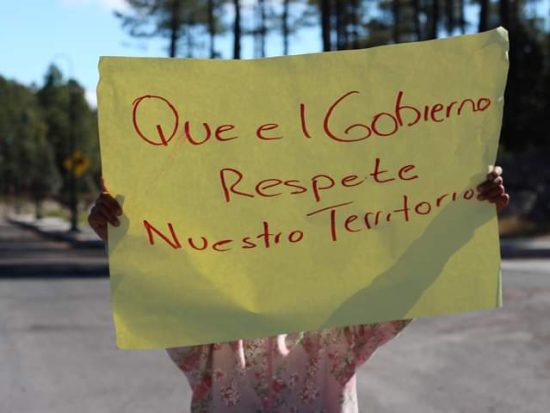 Que el Gobierno
Respete
Nuestro Territorio